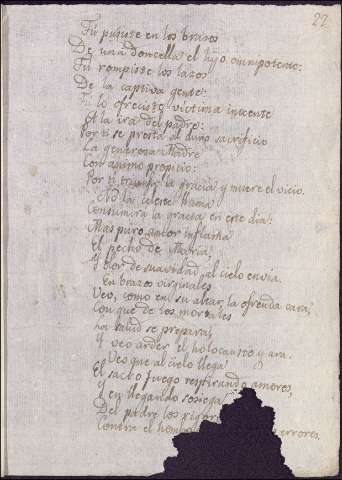 22
Tú pusiste en los brazos
De una doncella el hijo omnipotente:
Tú rompiste los lazos
De la captiva gente:
Tú le ofreciste victima inocente
A la ira del padre:
Por ti se presta al duro sacrificio
La generosa Madre
Con animo propicio:
Por ti triunfa la gracia, y muere el vicio.
No la celeste llama
Consumirá la grata en este dia:
Mas puro amor inflama
El pecho de Maria,
Y olor de suavidad al cielo envia.
En brazos virginales
Veo, como en su altar, la ofrenda cara,
Con que de los mortales
La salud se prepara;
Y veo arder el holocausto y ara.
Veo que al cielo llega
El sacro fuego respirando amores,
Y en llegando sosiega
Del padre los rigores
Contra el hombre errores.